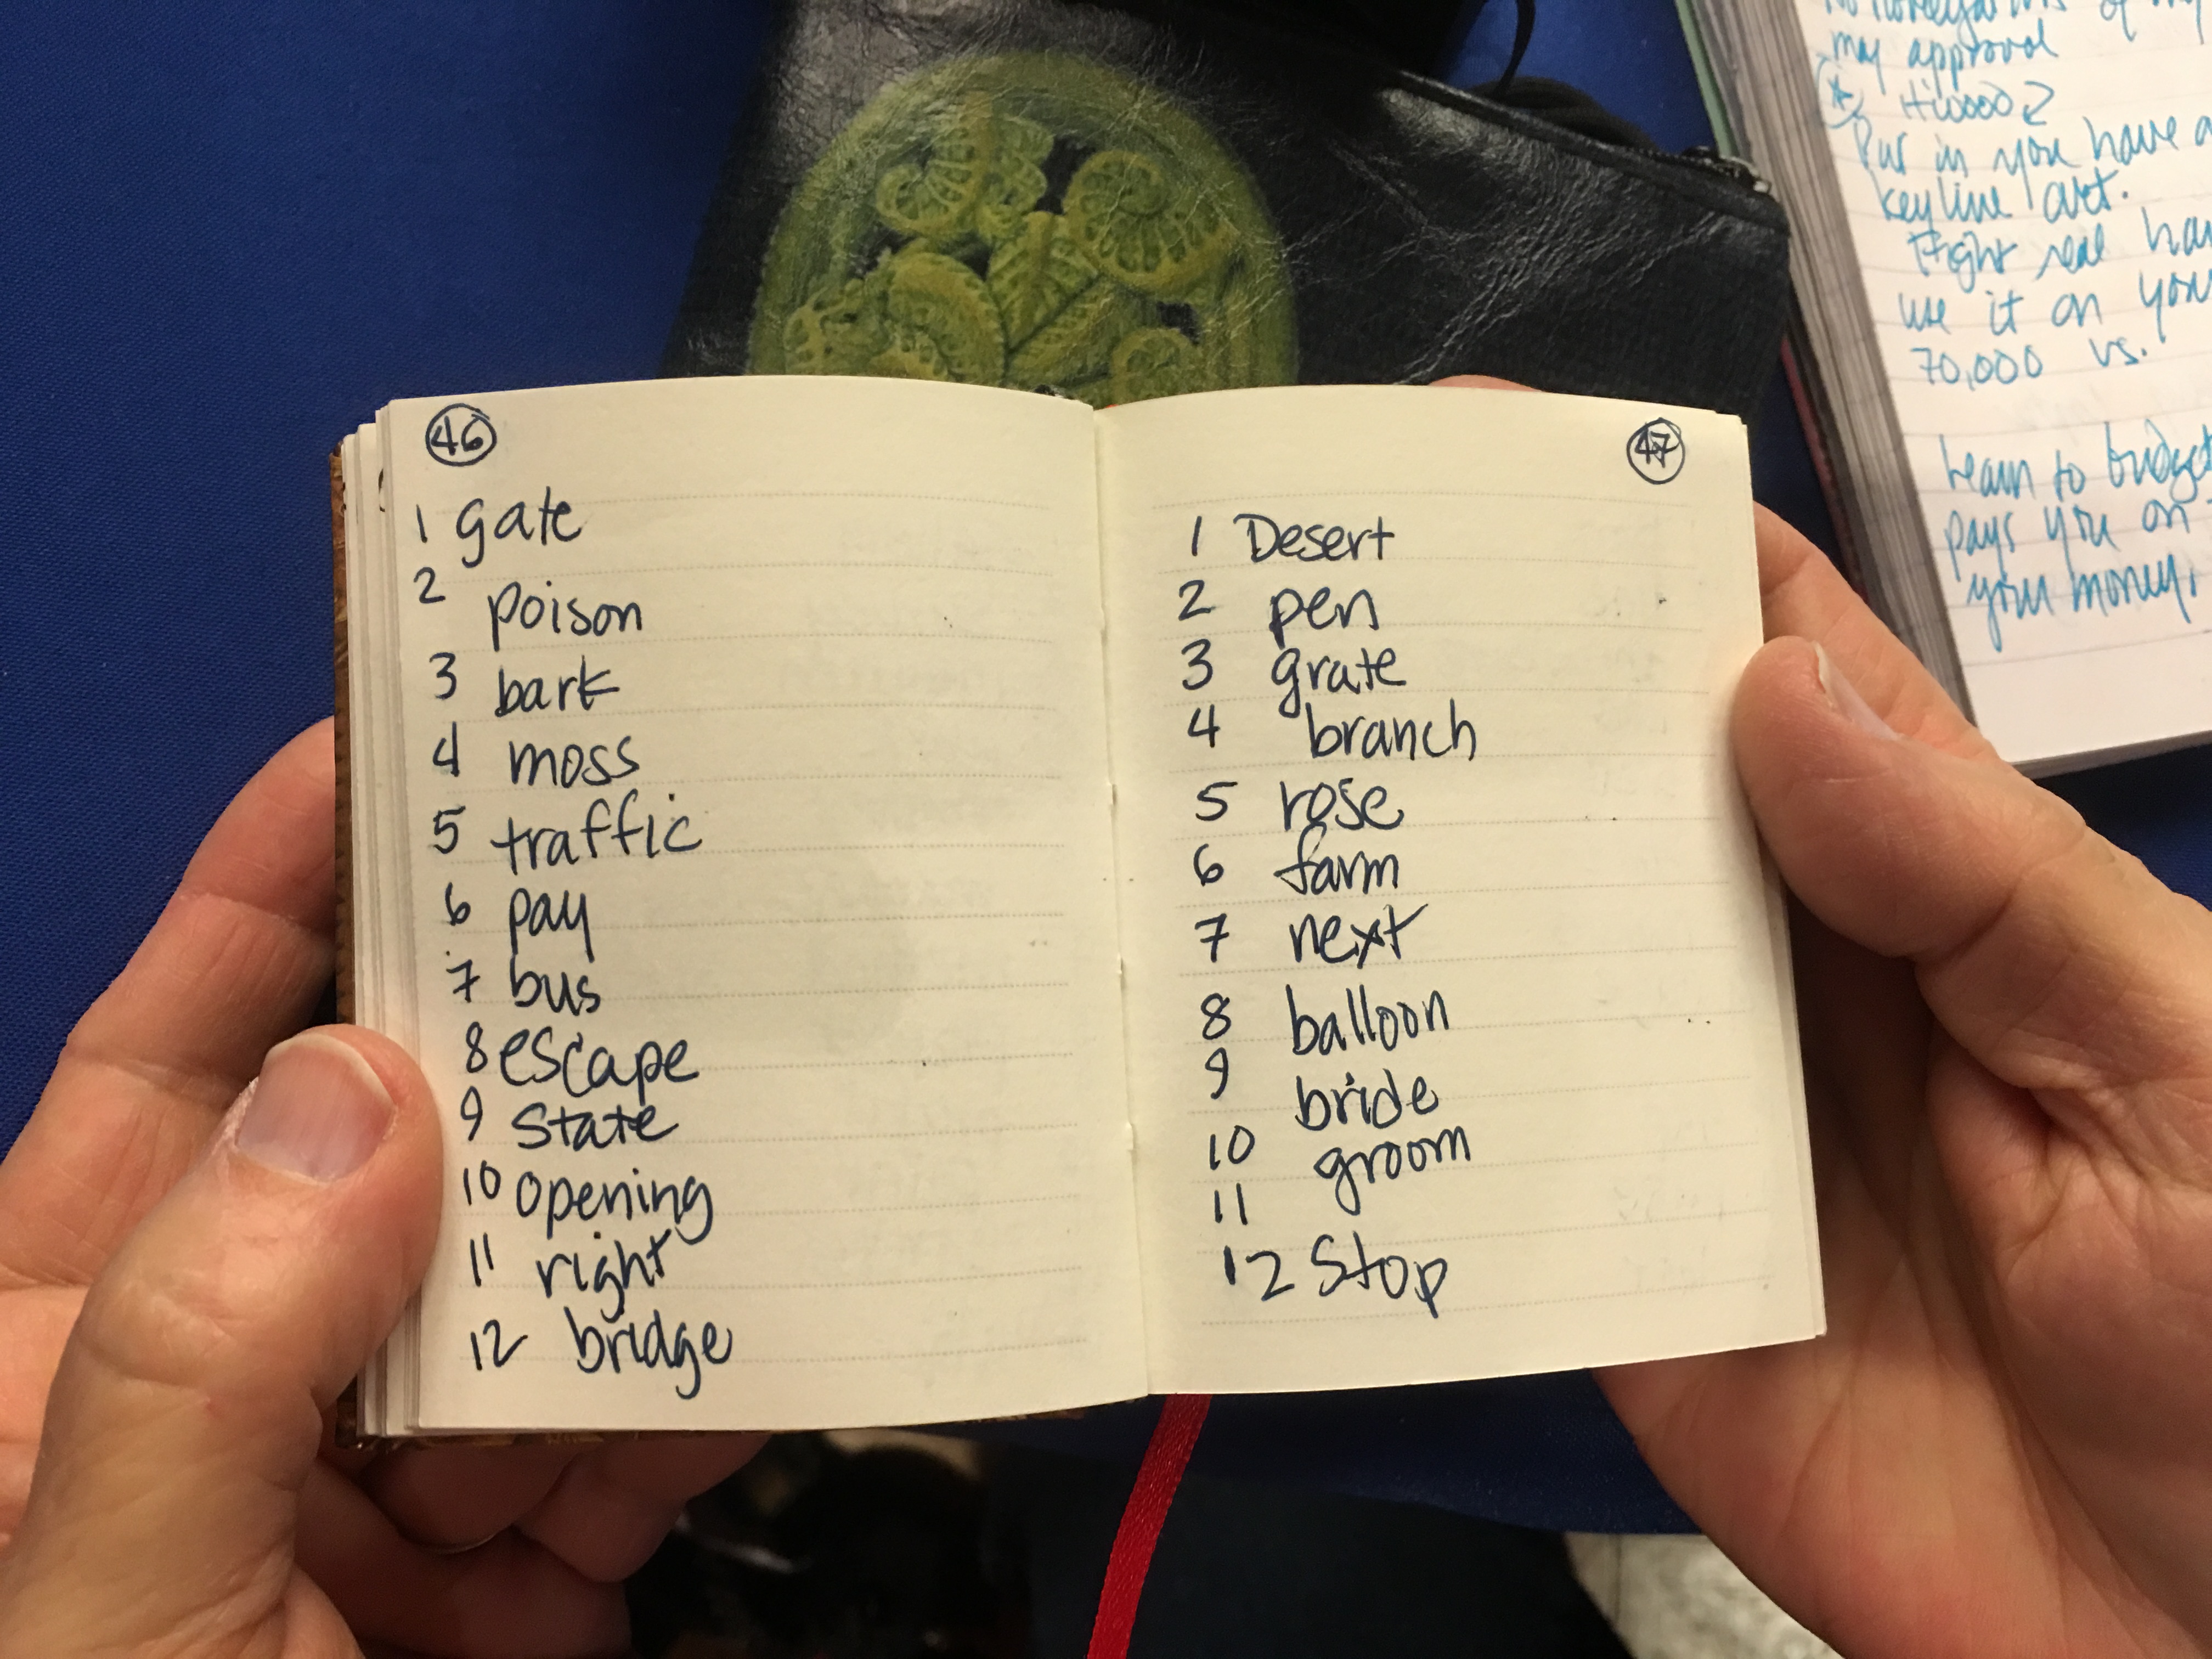 46
1 gate
2 poison
3 bark
4 moss
5 traffic
6 pay
7 bus
8 escape
9 state
10 opening
11 right
12 bridge
47
1 Desert
2 pen
3 grate
4 branch
5 rose
6 farm
7 next
8 balloon
9 bride
10 groom
11
12 Stop
may approval
in you have a
key line
real
use it on your
70,000 vs.
learn to budget
pays you on
your money.